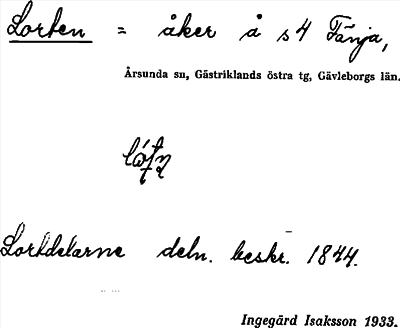 Lorten = åker å s4 Fänja,
Årsunda sn, Gästriklands östra tg, Gävleborgs län.
Lortdelarne deln. beskr. 1844.
Ingegärd Isaksson 1933.